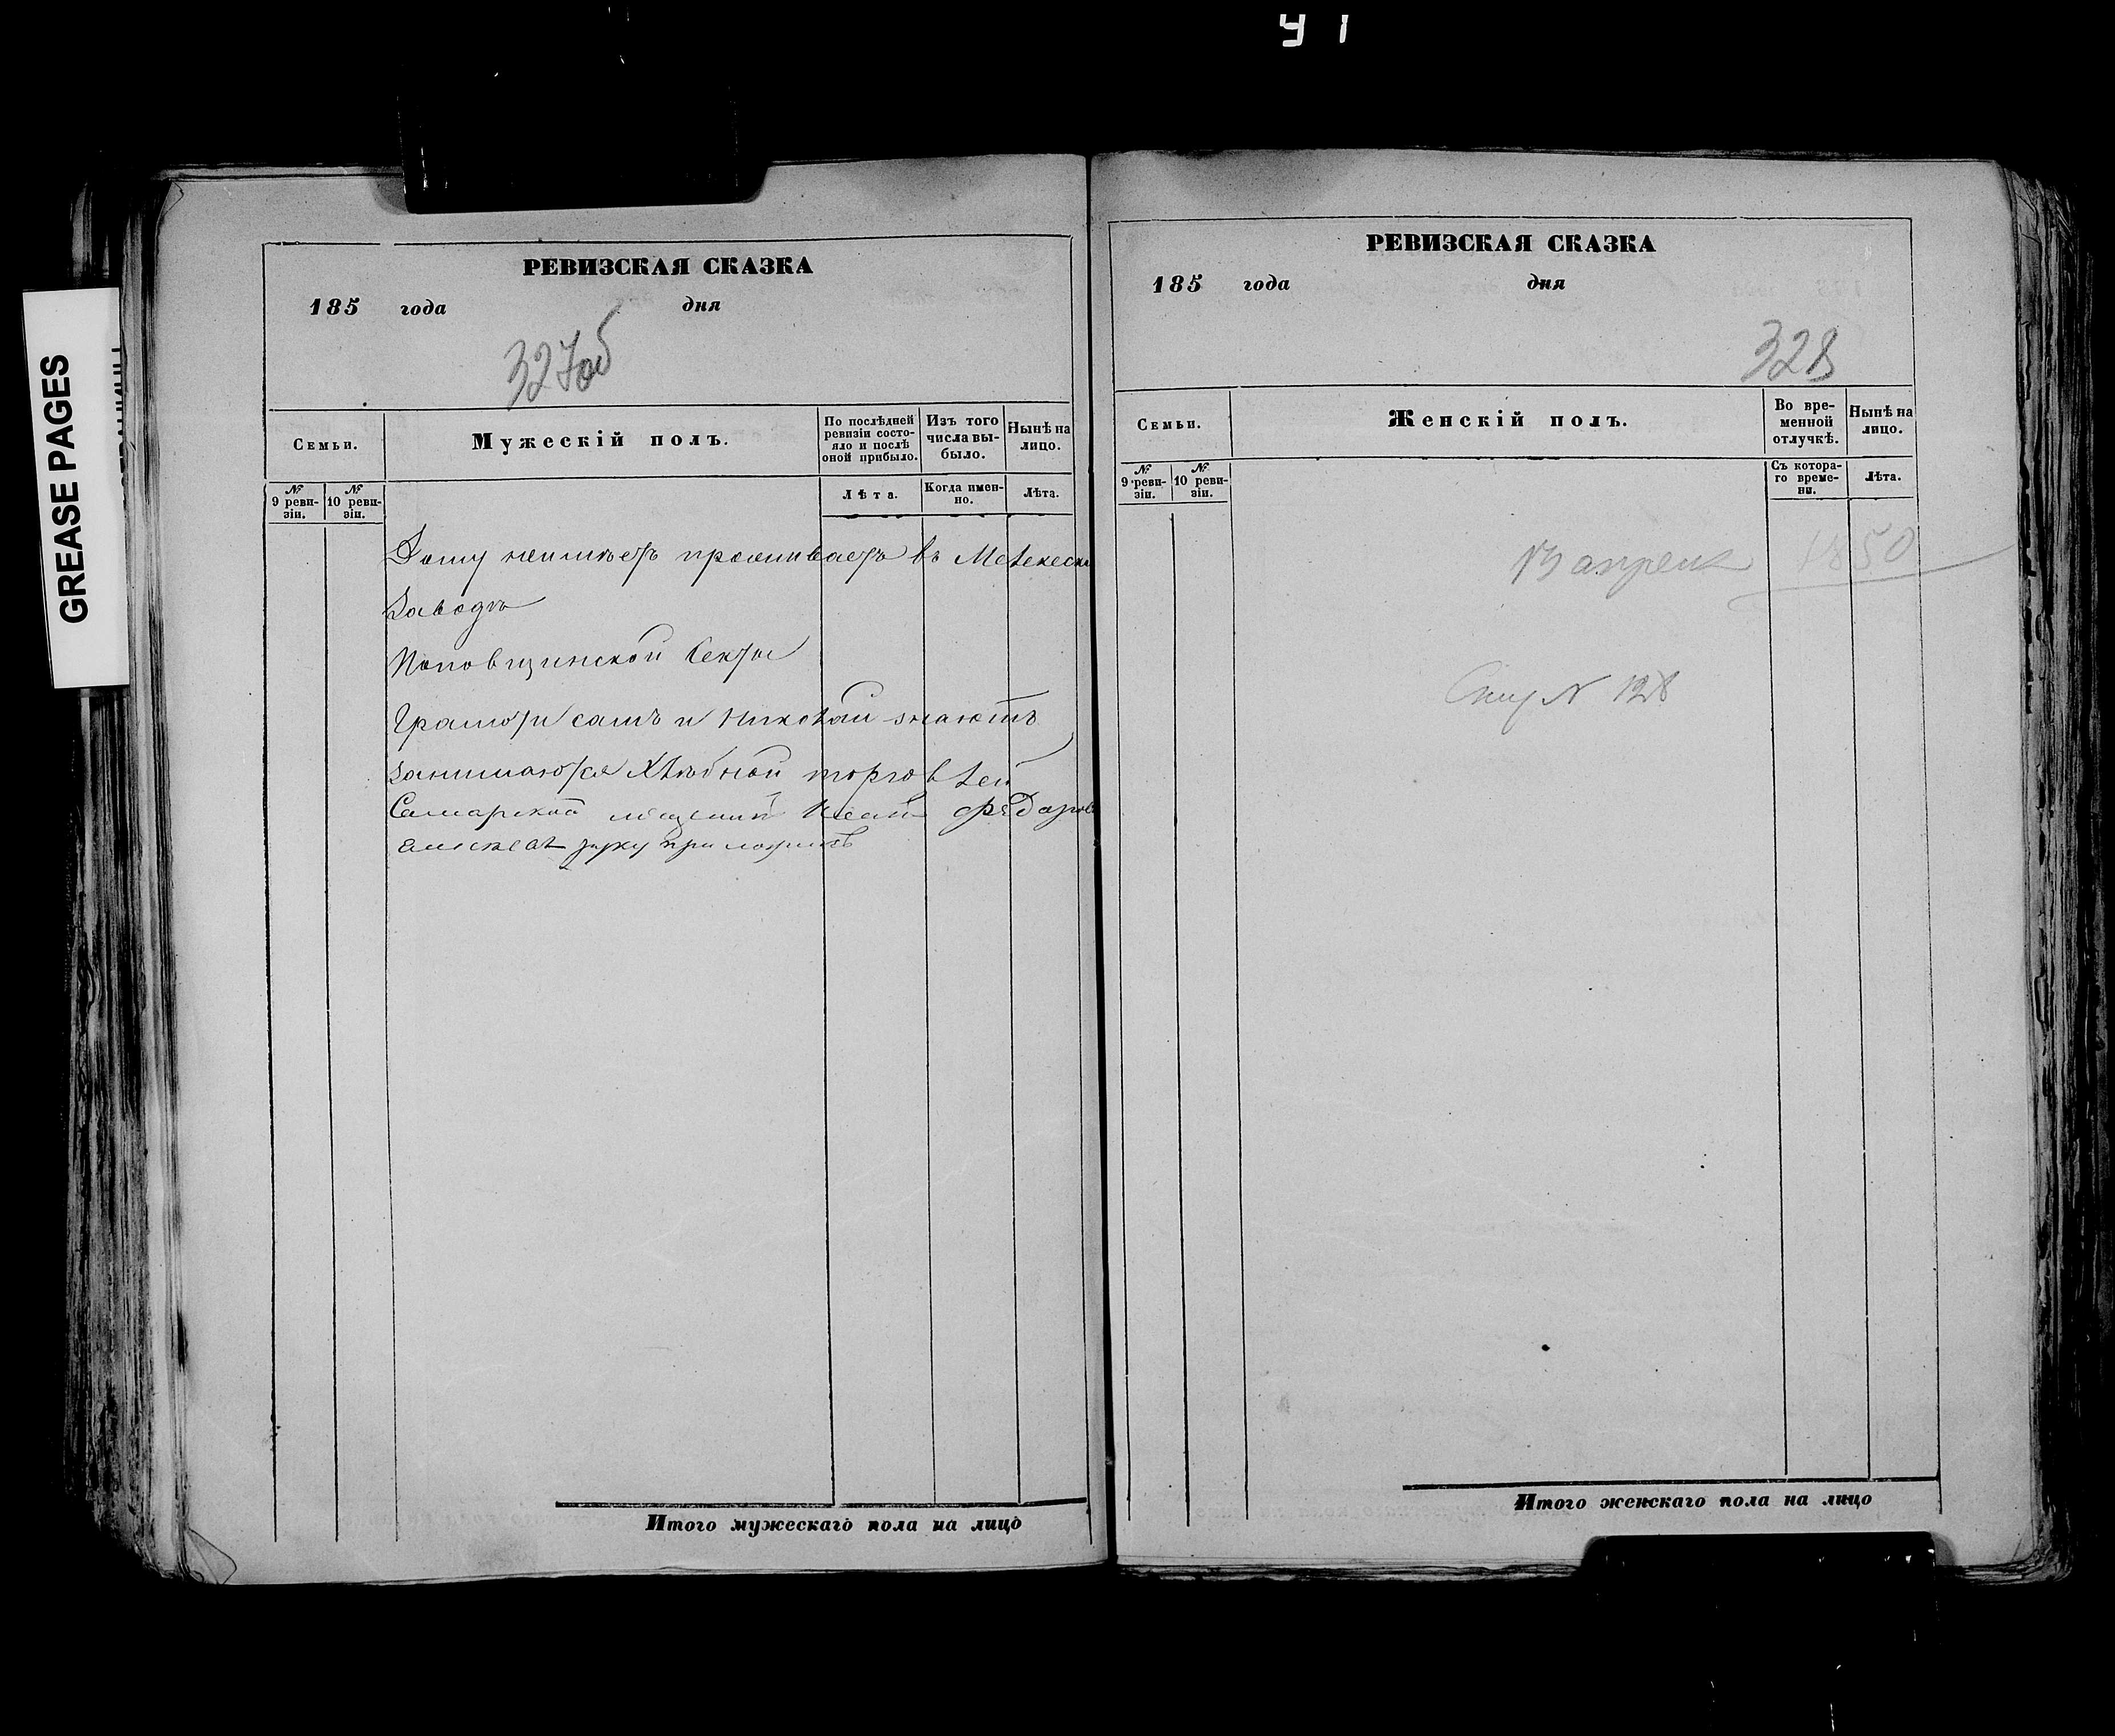 У 1
GREASE PAGES
РЕВИЗСКАЯ СКАЗКА
185 года дня
327об
Семьи.
Мужескій полъ.
По послѣдней ревизіи состояло и послѣ оной прибыло.
Изъ того числа выбыло.
Нынѣ на лицо.
№ 9 ревизіи.
№ 10 ревизіи.
Лѣта.
Когда именно.
Лѣта.
Дому неимѣетъ проживаетъ въ Мелекеск
Заводѣ
Поповщинской Секты
Грамоти самъ и Николай знаютъ
занимаются Хлѣбной торговлей
Самарской мещанинъ Федоров
руку приложилъ
Итого мужескаго пола на лицо
РЕВИЗСКАЯ СКАЗКА
185 года дня
328
Семьи.
Женскій полъ.
Во временной отлучкѣ.
Нынѣ на лицо.
№ 9 ревизіи.
№ 10 ревизіи.
Съ котораго времени.
Лѣта.
апреля 1850
№ 128
Итого женскаго пола на лицо